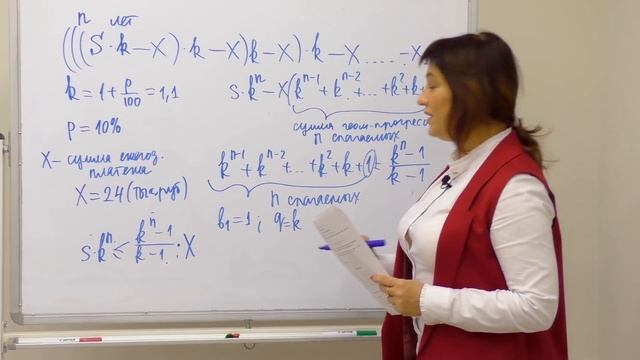 n лет
(((S·k−X)·k−X)k−X)·k−X.....−X
k=1+p/100=1,1
S·kⁿ−X(kⁿ⁻¹+kⁿ⁻²+...+k²+k+
p=10%
сумма геом-прогресси
n слагаемых
X− сумма ежегод. платежа
kⁿ⁻¹+kⁿ⁻²+...+k²+k+1=(kⁿ−1)/(k−1)
X=24(тыс.руб)
n слагаемых
b₁=1; q=k
S·kⁿ≤(kⁿ−1)/(k−1):X